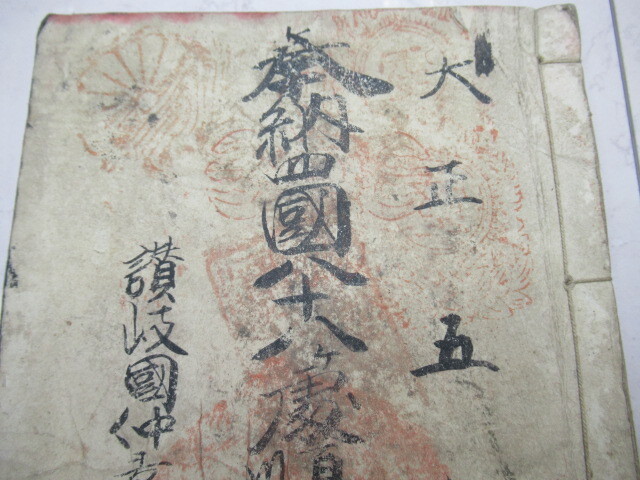 大正五
奉納四國八十八ヶ
讃岐國仲